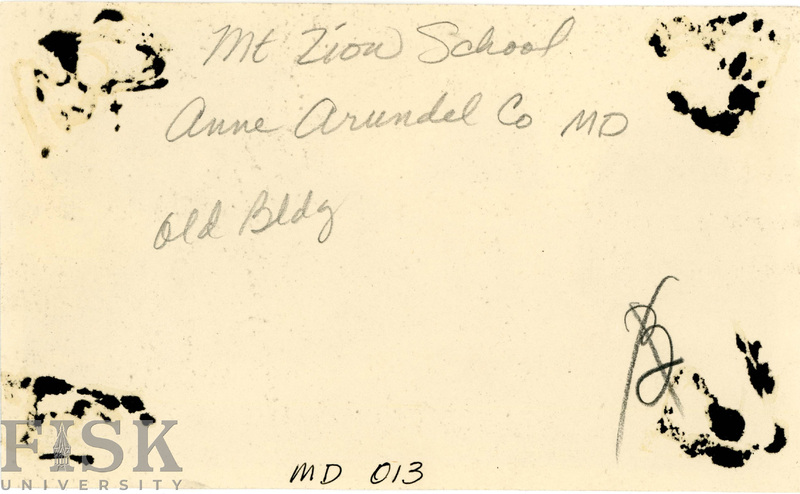 Mt Zion School
Anne Arundel Co MD
Old Bldg
MD 013
FISK
UNIVERSITY